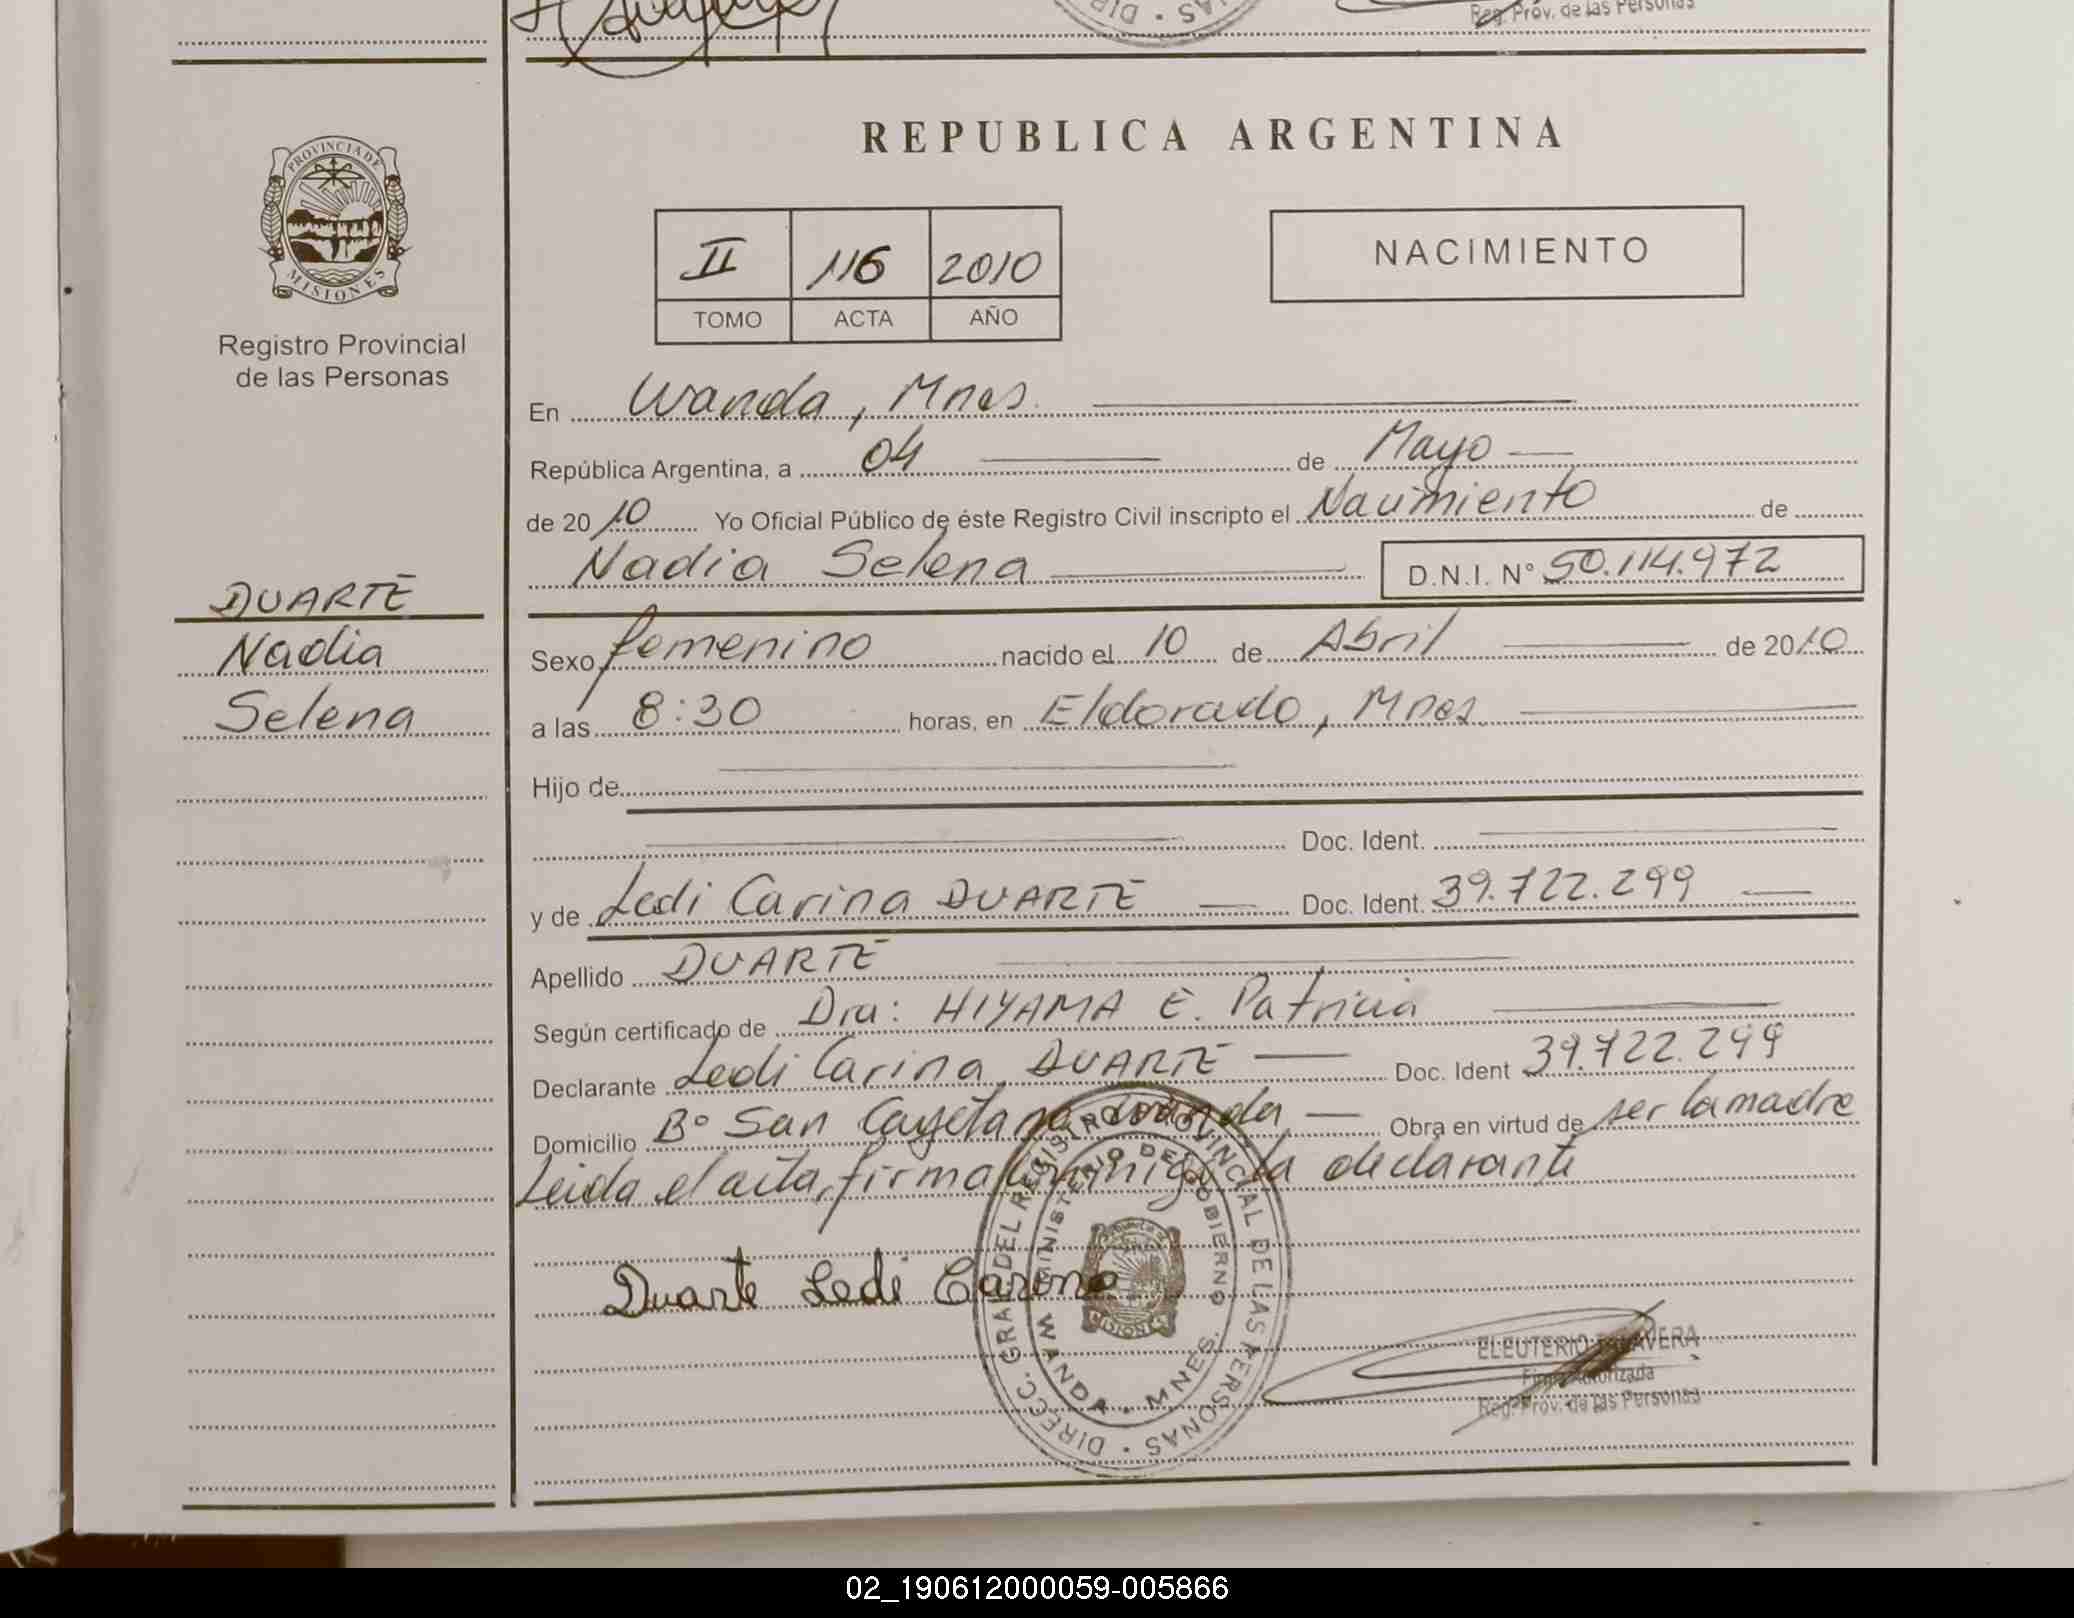 Reg. Prov. de las Personas
REPUBLICA ARGENTINA
PROVINCIA DE
MISIONES
II 116 2010
TOMO ACTA AÑO
NACIMIENTO
Registro Provincial
de las Personas
En Wanda, Mnes.
República Argentina, a 04 de Mayo
de 2010 Yo Oficial Público de éste Registro Civil inscripto el Nacimiento de
Nadia Selena D.N.I. N° 50.114.972
DUARTE
Nadia
Selena
Sexo femenino nacido el 10 de Abril de 2010
a las 8:30 horas, en Eldorado, Mnes.
Hijo de
Doc. Ident.
y de Ledi Carina DUARTE Doc. Ident. 39.722.299
Apellido DUARTE
Según certificado de Dra: HIYAMA E. Patricia
Declarante Ledi Carina DUARTE Doc. Ident 39.722.299
Domicilio B° San Cayetano Wanda Obra en virtud de ser la madre
Leida el acta, firma conmigo la declarante
DIRECC. GRAL DEL REGISTRO PROVINCIAL DE LAS PERSONAS
MINISTERIO DE GOBIERNO
WANDA - MNES.
MISIONES
Duarte Ledi Carina
ELEUTERIO TALAVERA
Firma Autorizada
Reg. Prov. de las Personas
02_190612000059-005866